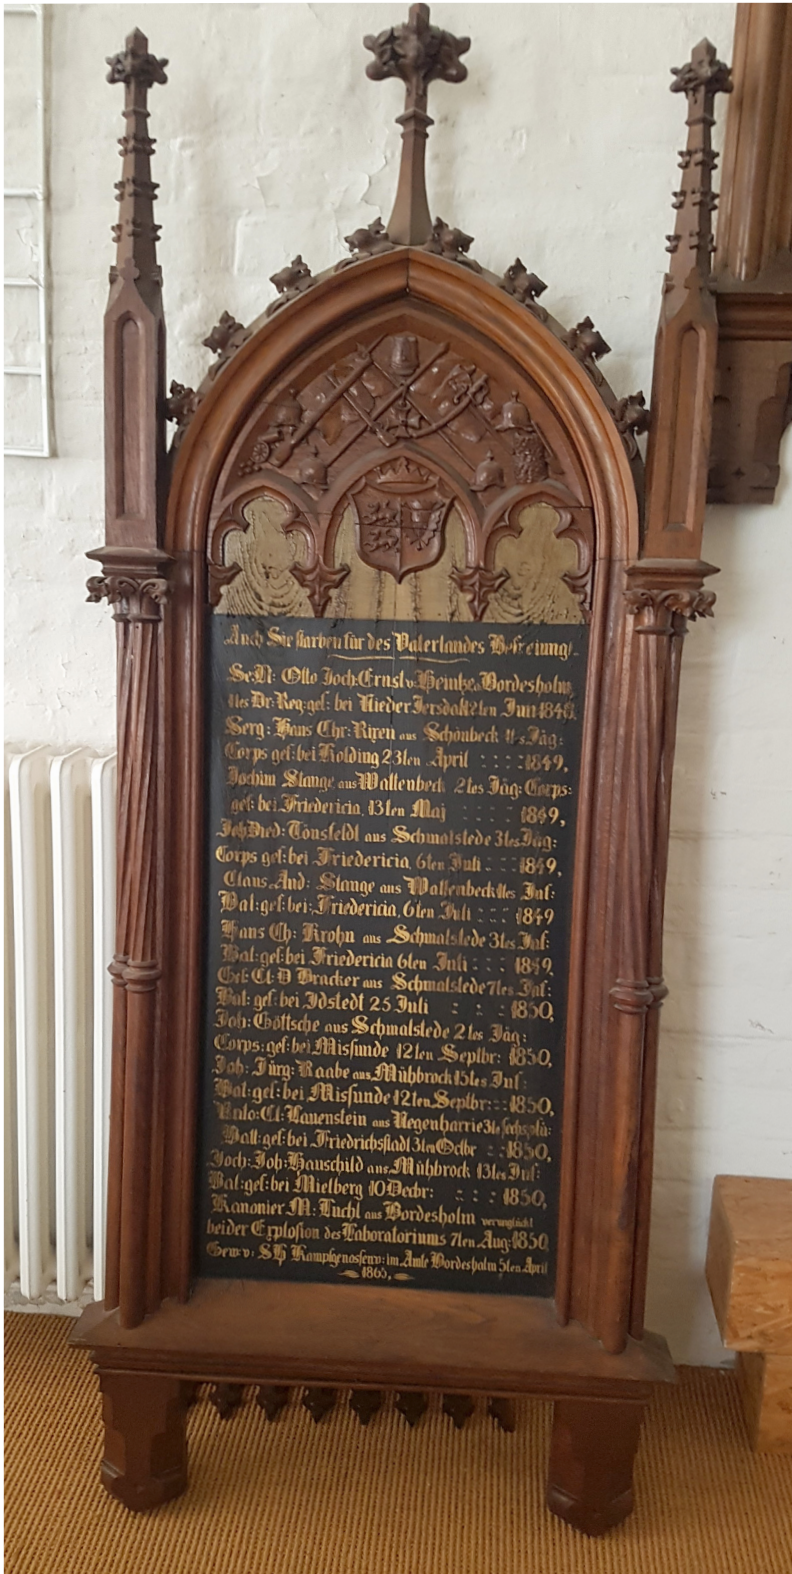 Auch Sie starben für des Vaterlandes Befreiung!
Otto Joch: Ernst v. Heintze a. Bordesholm,
1tes Dr: Reg: gef: bei Nieder Jersdal 2ten Juni 1848.
Serg: Hans Chr: Rixen aus Schönbeck 1tes Jäg:
Corps gef: bei Kolding 23ten April : : : : 1849,
Jochim Stange aus Wattenbeck 2tes Jäg: Corps:
gef: bei Friedericia, 13ten Maj : : : : 1849,
Joh: Died: Tönsfeldt aus Schmalstede 3tes Jäg:
Corps gef: bei Friedericia, 6ten Juli : : : 1849,
Claus And: Stange aus Wattenbeck 11tes Inf:
Bat: gef: bei Friedericia, 6ten Juli : : : 1849
Hans Ch: Krohn aus Schmalstede 3tes Inf:
Bat: gef: bei Friedericia 6ten Juli : : : 1849,
Gef: Cl: D Bracker aus Schmalstede 7tes Inf:
Bat: gef: bei Idstedt 25 Juli : : : 1850,
Joh: Göttsche aus Schmalstede 2tes Jäg:
Corps: gef: bei Missunde 12ten Septbr: 1850,
Joh: Jürg: Raabe aus Mühbrock 15tes Inf:
Bat: gef: bei Missunde 12ten Septbr: : : 1850,
Cl: Lauenstein aus Negenharrie 3te
Batt: gef: bei Friedrichstadt 3ten Octbr : : 1850,
Joch: Joh: Hauschild aus Mühbrock 13tes Inf:
Bat: gef: bei Mielberg 10 Decbr: : : : 1850,
Kanonier M: Lucht aus Bordesholm verunglückt
bei der Explosion des Laboratoriums 7ten Aug: 1850,
Gew: v: SH Kampfgenossenv: im Amte Bordesholm 5ten April
1865,